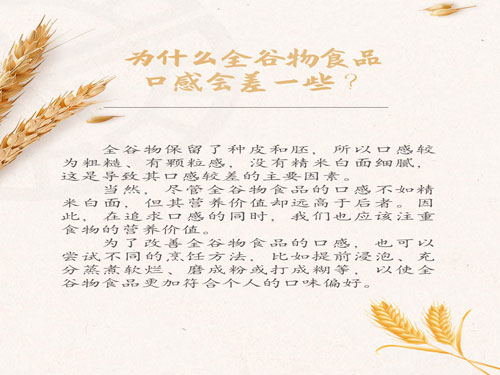 为什么全谷物食品
口感会差一些？
全谷物保留了种皮和胚，所以口感较
为粗糙、有颗粒感，没有精米白面细腻，
这是导致其口感较差的主要因素。
当然，尽管全谷物食品的口感不如精
米白面，但其营养价值却远高于后者。因
此，在追求口感的同时，我们也应该注重
食物的营养价值。
为了改善全谷物食品的口感，也可以
尝试不同的烹饪方法，比如提前浸泡、充
分蒸煮软烂、磨成粉或打成糊等，以使全
谷物食品更加符合个人的口味偏好。